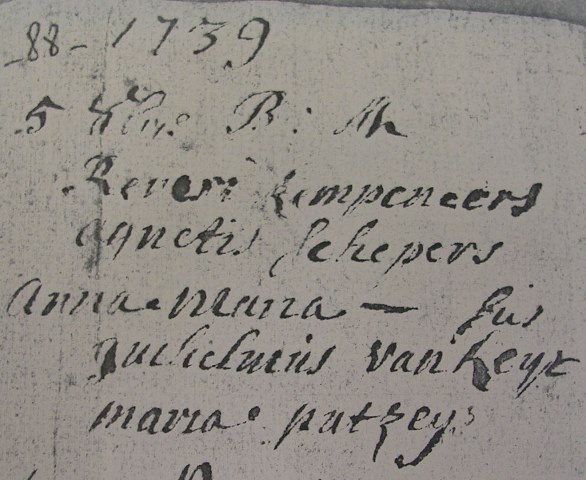 -88- 1739
5 B: M
Reneri kempeneers
agnetis schepers
Anna Maria — sus
guilielmus van heyk
maria putzeys